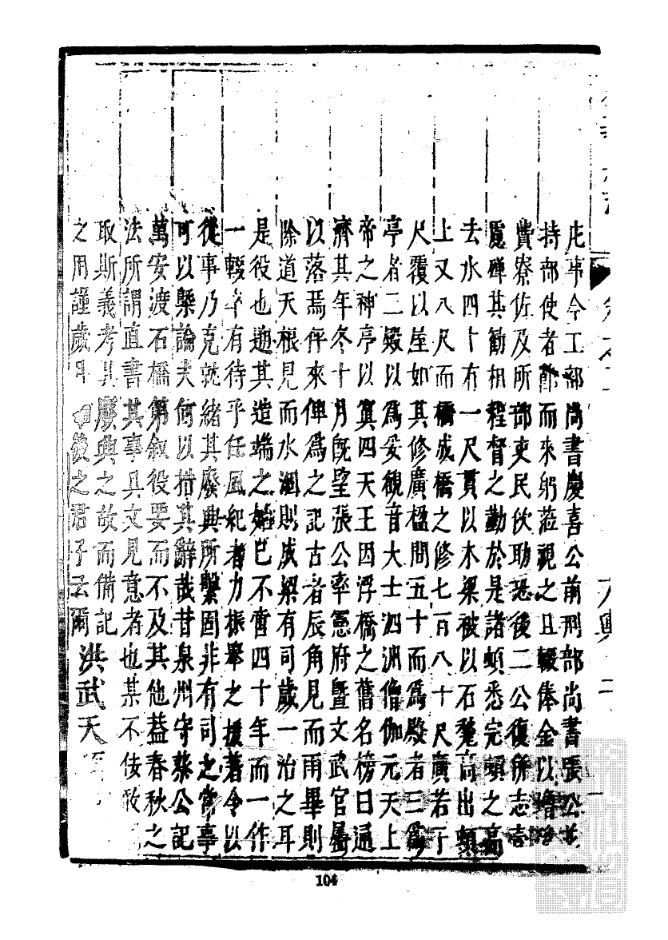 庀事今工部尚書慶喜公前刑部尚書張公
持部使者節而來躬蒞視之且輟俸金以
費寮佐及所部吏民佽助恐後二公復所志喜
礱磾其勸相程督之勤於是諸墩悉完墩之高
去水四十有一尺貫以木梁被以石甃高出墩
上又八尺而橋成橋之修七百八十尺廣若干
尺覆以屋如其修廣楹間五十而為殿者三為
亭者二殿以為妥觀音大士泗洲僧伽元天上
帝之神亭以寘四天王因浮橋之舊名榜曰通
濟其年冬十月既望張公率憲府暨文武官屬
以落焉伻來俾為之記古者辰角見而雨畢則
除道天根見而水涸則成梁有司歲一治之耳
是役也迺其造端之始已不啻四十年而一作
一輟卒有待乎任風紀者力振舉之援著令以
從事乃克就緒其廢興所繫固非有司之常事
可以槩論夫何以措其辭哉昔泉州守蔡公記
萬安渡石橋第敘役要而不及其他益春秋之
法所謂直書其事具文見意者也某不佞敢
取斯義考其廢興之故而備記
之用謹歲月 後之君子云爾 洪武天
104